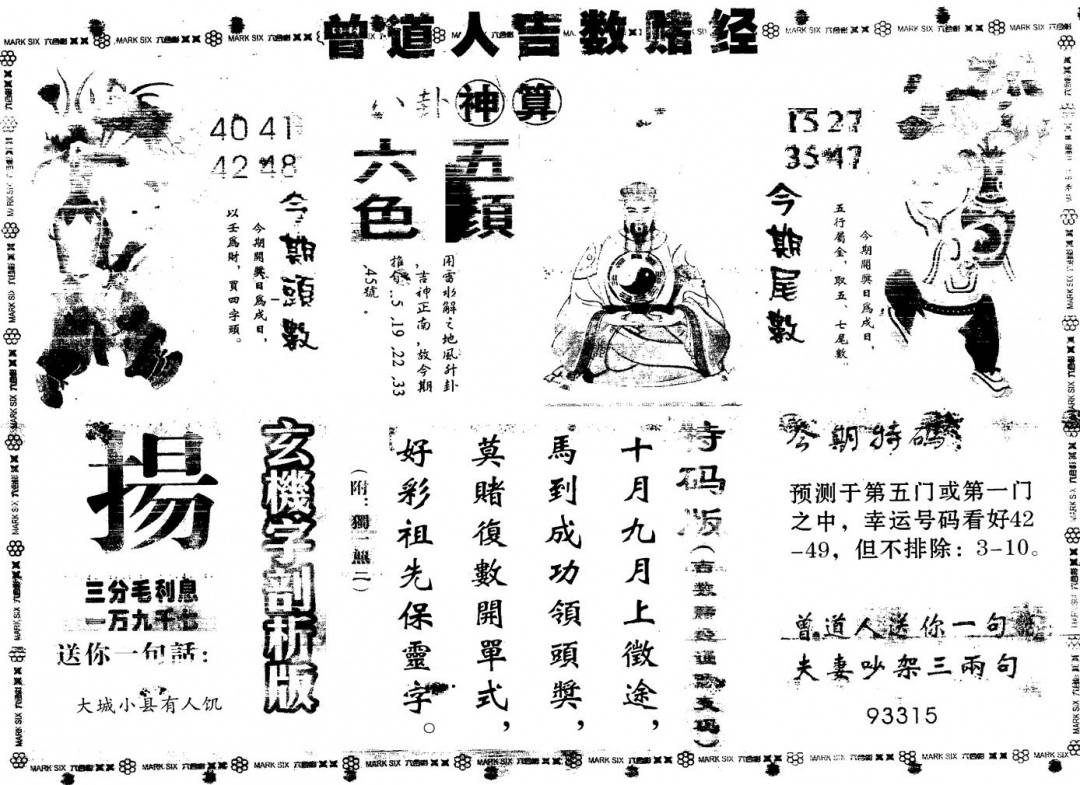 曾道人吉数赌经
八卦神算
40 41
42 48
今期頭數
今期開獎日爲戌日，
以壬爲財，買四字頭。
六色
五顏
用雷水解之地風升卦
，吉神正南，故今期
推介..5,19,22,33
45號。
15 27
35 47
今期尾數
今期開獎日爲戌日，
五行屬金，取五、七尾數
揚
三分毛利息
一万九千七
送你一句話：
大城小县有人饥
玄機字剖析版
特码版
十月九月上徵途，
馬到成功領頭獎，
莫賭復數開單式，
好彩祖先保靈字。
（附：獨一無二）
今期特碼
预测于第五门或第一门
之中，幸运号码看好42
-49，但不排除：3-10。
曾道人送你一句
夫妻吵架三兩句
93315
MARK SIX 六合彩